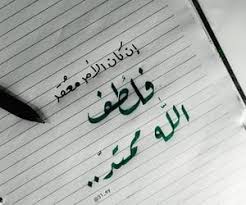 إن كان الأمر معقد
فلطف
الله ممتد..